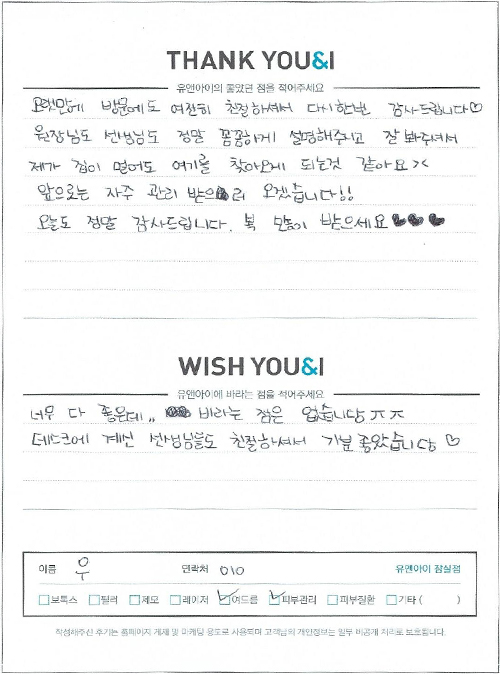 THANK YOU&I
유앤아이의 좋았던 점을 적어주세요
오랫만에 방문에도 여전히 친절하셔서 다시한번 감사드립니다♡
원장님도 선생님도 정말 꼼꼼하게 설명해주시고 잘 봐주셔서
제가 집이 멀어도 여기를 찾아오게 되는것 같아요><
앞으로는 자주 관리 받으러 오겠습니다!!
오늘도 정말 감사드립니다. 복 많이 받으세요♥♥♥
WISH YOU&I
유앤아이에 바라는 점을 적어주세요
너무 다 좋은데,, 바라는 점은 없습니당ㅠㅠ
데스크에 계신 선생님들도 친절하셔서 기분좋았습니당♡
이름 우 연락처 010 유앤아이 잠실점
□보톡스 □필러 □제모 □레이저 ☑여드름 ☑피부관리 □피부질환 □기타 ( )
작성해주신 후기는 홈페이지 게재 및 마케팅 용도로 사용되며 고객님의 개인정보는 일부 비공개 처리로 보호됩니다.